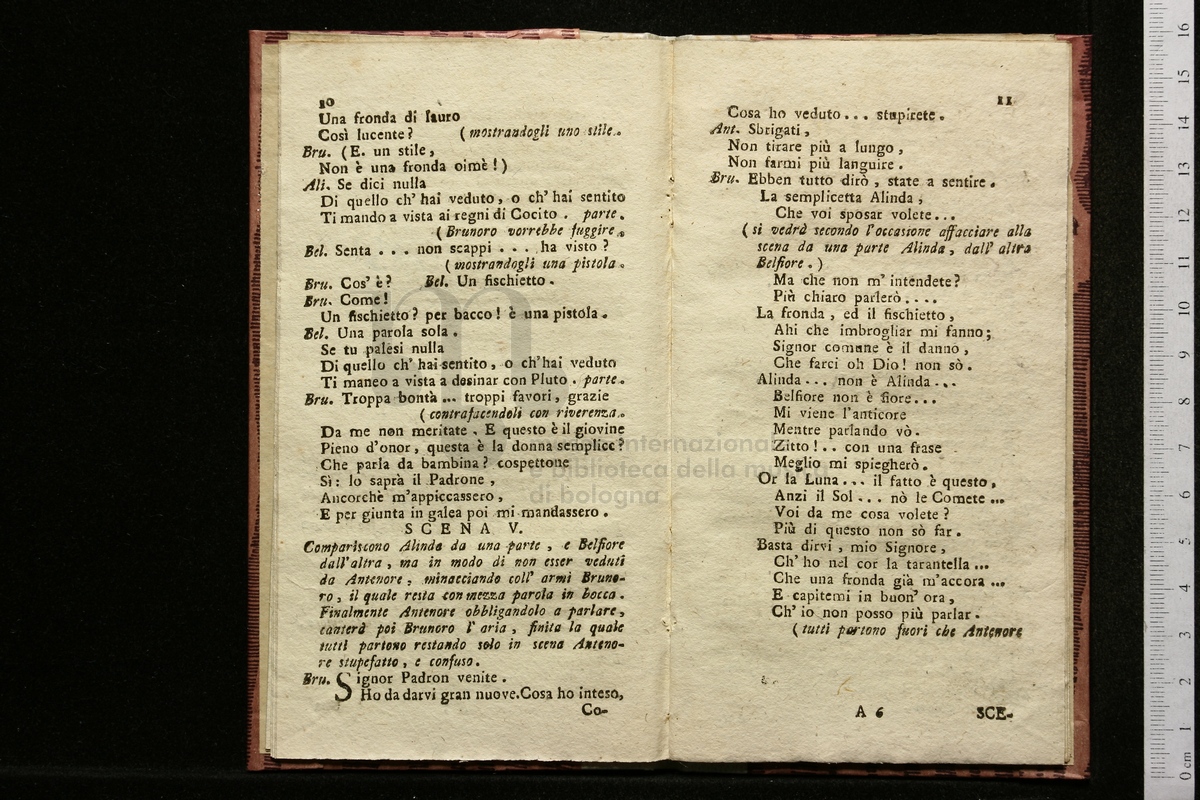 10
Una fronda di lauro
Così lucente? (mostrandogli uno stile.
Bru. (E. un stile,
Non è una fronda oimè!)
Ali. Se dici nulla
Di quello ch' hai veduto, o ch' hai sentito
Ti mando a vista ai regni di Cocito. parte.
(Brunoro vorrebbe fuggire.
Bel. Senta . . . non scappi . . . ha visto?
(mostrandogli una pistola.
Bru. Cos' è? Bel. Un fischietto.
Bru. Come!
Un fischietto? per bacco! è una pistola.
Bel. Una parola sola.
Se tu palesi nulla
Di quello ch' hai sentito, o ch'hai veduto
Ti maneo a vista a desinar con Pluto. parte.
Bru. Troppa bontà ... troppi favori, grazie
(contrafacendoli con riverenza.
Da me non meritate. E questo è il giovine
Pieno d'onor, questa è la donna semplice?
Che parla da bambina? cospettone
Sì: lo saprà il Padrone,
Ancorchè m'appiccassero,
E per giunta in galea poi mi mandassero.
SCENA V.
Compariscono Alinda da una parte, e Belfiore
dall'altra, ma in modo di non esser veduti
da Antenore, minacciando coll' armi Bruno-
ro, il quale resta con mezza parola in bocca.
Finalmente Antenore obbligandolo a parlare,
canterà poi Brunoro l' aria, finita la quale
tutti partono restando solo in scena Anteno-
re stupefatto, e confuso.
Bru. Signor Padron venite.
Ho da darvi gran nuove. Cosa ho inteso,
Co-
11
Cosa ho veduto... stupirete.
Ant. Sbrigati,
Non tirare più a lungo,
Non farmi più languire.
Bru. Ebben tutto dirò, state a sentire.
La semplicetta Alinda,
Che voi sposar volete...
(si vedrà secondo l'occasione affacciare alla
scena da una parte Alinda, dall' altra
Belfiore.)
Ma che non m' intendete?
Più chiaro parlerò....
La fronda, ed il fischietto,
Ahi che imbrogliar mi fanno;
Signor comune è il danno,
Che farci oh Dio! non sò.
Alinda... non è Alinda...
Belfiore non è fiore...
Mi viene l'anticore
Mentre parlando vò.
Zitto!.. con una frase
Meglio mi spiegherò.
Or la Luna... il fatto è questo,
Anzi il Sol... nò le Comete ...
Voi da me cosa volete?
Più di questo non sò far.
Basta dirvi, mio Signore,
Ch' ho nel cor la tarantella ...
Che una fronda già m'accora ...
E capitemi in buon' ora,
Ch' io non posso più parlar.
(tutti partono fuori che Antenore
A 6 SCE-
internazional
e biblioteca della mu
di bologna
0 cm 1 2 3 4 5 6 7 8 9 10 11 12 13 14 15 16